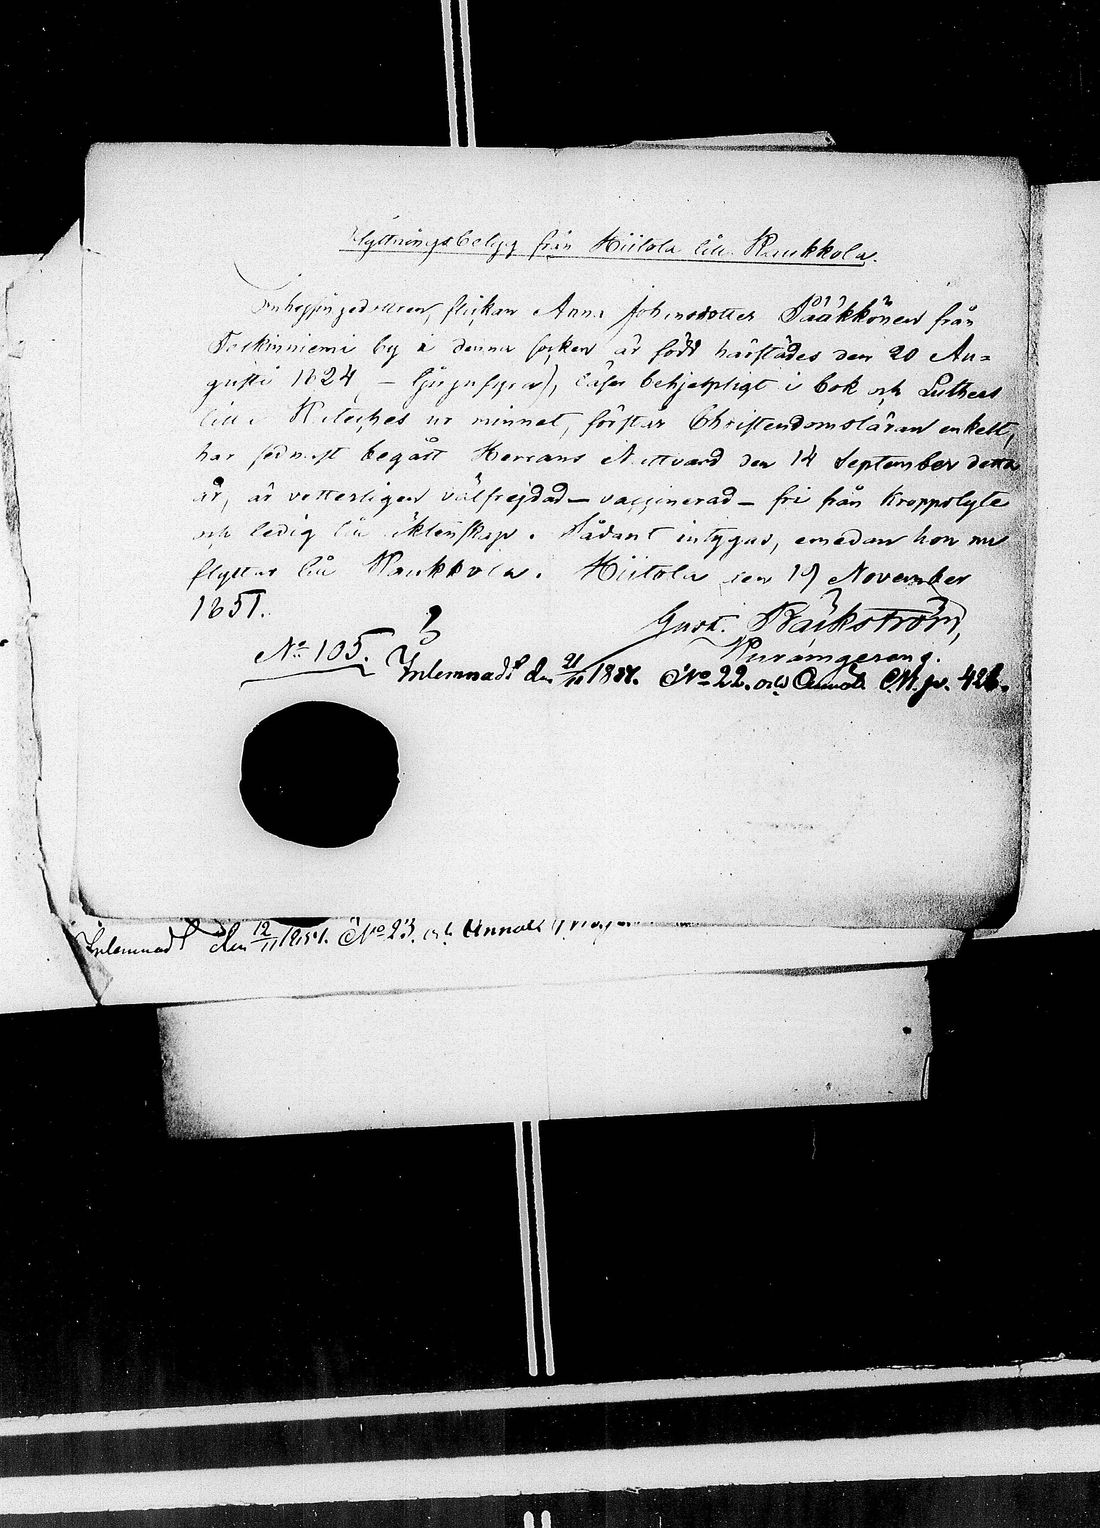 Flyttningsbetyg från Hiitola till Raukkola.
Inhysingedottren, flickan Anna Johansdotter Pääkkönen från
Torkinniemi by i denna socken är född härstädes den 20 Au=
gusti 1824 – (tjugufyra), läser behjelpligt i bok och Luthers
lilla Kateches ur minnet, förstår Christendomsläran enkelt,
har sednast begått Herrans Nattvard den 14 September detta
år, är vetterligen välfrejdad – vaccinerad – fri från kroppslyte
och ledig till äktenskap. Sådant intygas, emedan hon nu
flyttar till Raukkola. Hiitola den 19 November
1851.
Gust. Bäckström,
No 105.
Inlemnadt den 21/11 1851. No 22. och Annot. p. 426.
Inlemnadt den 12/11 1851. No 23. och Annot.